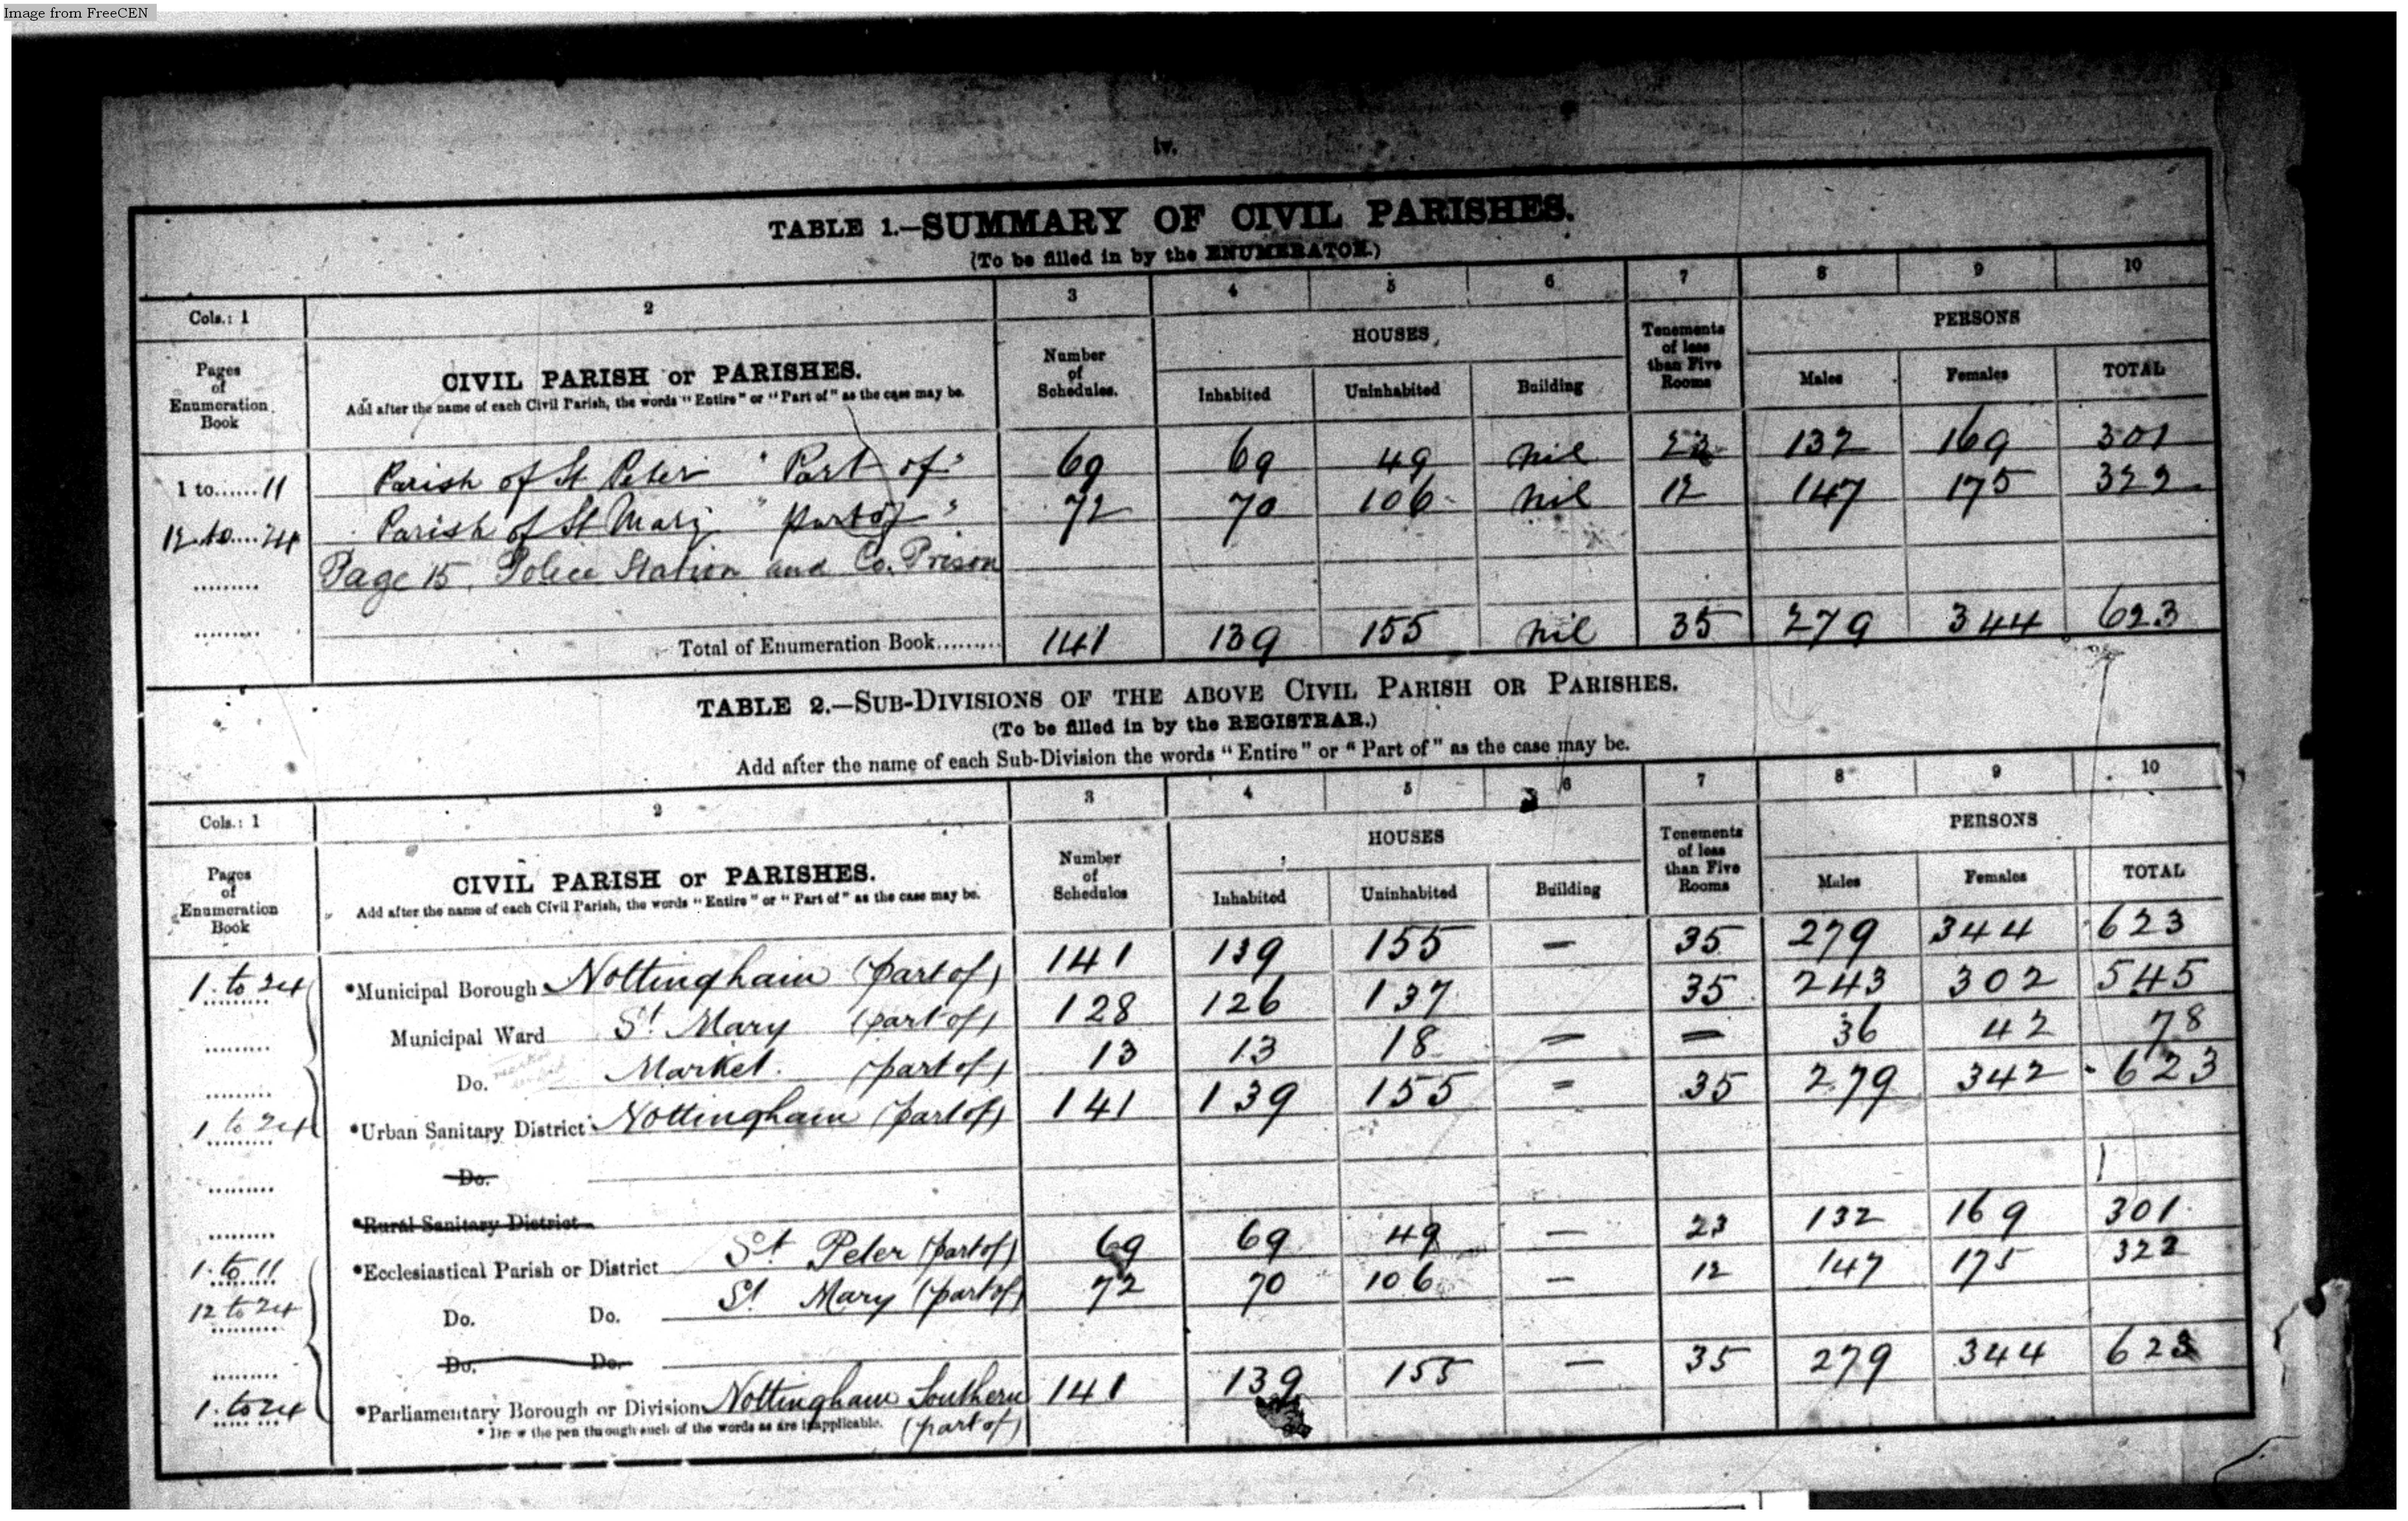 Image from FreeCEN
iv.
TABLE 1.—SUMMARY OF CIVIL PARISHES.
(To be filled in by the ENUMERATOR.)
Cols.: 1 2 3 4 5 6 7 8 9 10
Pages of Enumeration Book
CIVIL PARISH or PARISHES.
Add after the name of each Civil Parish, the words "Entire" or "Part of" as the case may be.
Number of Schedules.
HOUSES
Inhabited Uninhabited Building
Tenements of less than Five Rooms
PERSONS
Males Females TOTAL
1 to......11 Parish of St Peter "Part of" 69 69 49 nil 23 132 169 301
12 to....24 Parish of St Mary "part of" 72 70 106 nil 12 147 175 322
......... Page 15. Police Station and Co. Prison
......... Total of Enumeration Book......... 141 139 155 nil 35 279 344 623
TABLE 2.—SUB-DIVISIONS OF THE ABOVE CIVIL PARISH OR PARISHES.
(To be filled in by the REGISTRAR.)
Add after the name of each Sub-Division the words "Entire" or "Part of" as the case may be.
Cols.: 1 2 3 4 5 6 7 8 9 10
Pages of Enumeration Book
CIVIL PARISH or PARISHES.
Add after the name of each Civil Parish, the words "Entire" or "Part of" as the case may be.
Number of Schedules
HOUSES
Inhabited Uninhabited Building
Tenements of less than Five Rooms
PERSONS
Males Females TOTAL
1 to 24 *Municipal Borough Nottingham (part of) 141 139 155 — 35 279 344 623
......... Municipal Ward St Mary (part of) 128 126 137 35 243 302 545
......... Do. Market. (part of) 13 13 18 — — 36 42 78
1 to 24 *Urban Sanitary District Nottingham (part of) 141 139 155 = 35 279 342 623
......... Do.
......... *Rural Sanitary District
1 to 11 *Ecclesiastical Parish or District St Peter (part of) 69 69 49 — 23 132 169 301
12 to 24 Do. Do. St Mary (part of) 72 70 106 — 12 147 175 322
......... Do. Do.
1 to 24 *Parliamentary Borough or Division Nottingham Southern (part of) 141 139 155 — 35 279 344 623
* Draw the pen through such of the words as are inapplicable.